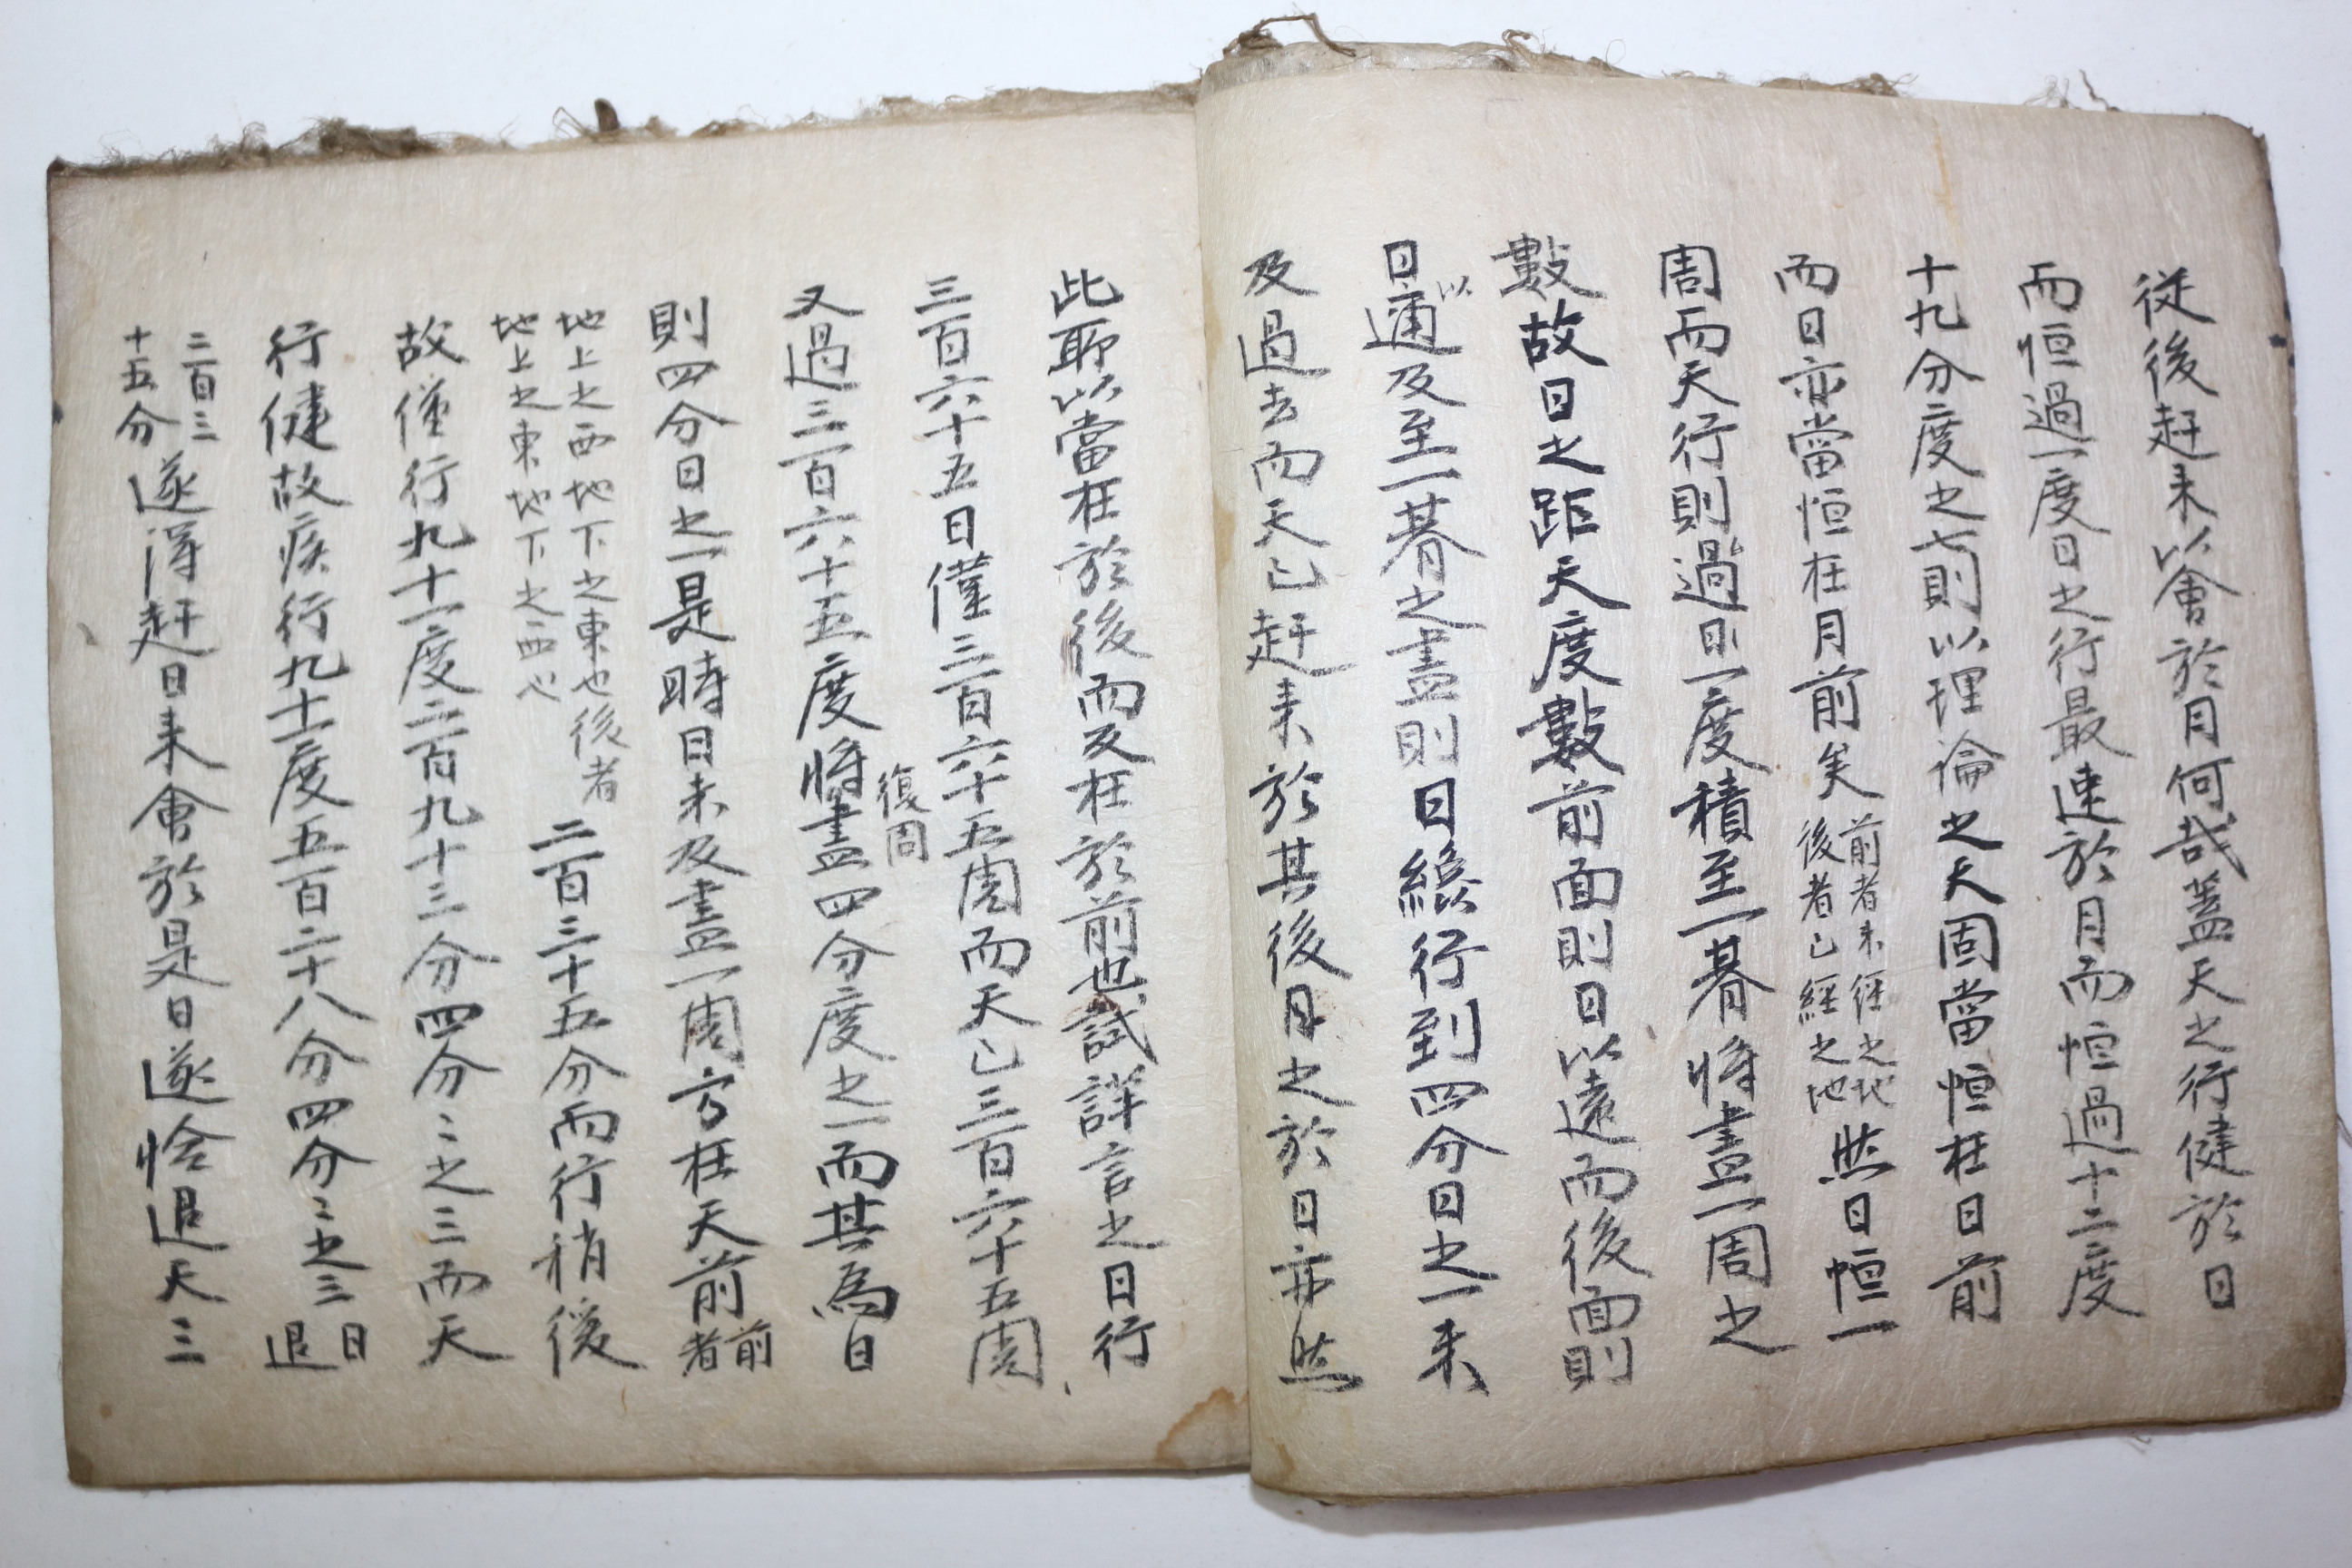 従後赶来以會於月何哉盖天之行健於日
而恒過一度日之行最速於月而恒過十二度
十九分度之七則以理論之天固當恒在日前
而日亦當恒在月前矣前者未經之地後者已經之地然日恒一
周而天行則過日一度積至一朞將盡一周之
數故日之距天度數前面則日以遠而後面則
日以通及至一朞之盡則日纔行到四分日之一来
及過去而天已赶来於其後月之於日亦然
此耶以當在於後而反在於前也試詳言之日行
三百六十五日僅三百六十五周而天已三百六十五周
又過三百六十五度將復周盡四分度之一而其為日
則四分日之一是時日未及盡一周方在天前前者
地上之西地下之東也後者地上之東地下之西也二百三十五分而行稍後
故僅行九十一度二百九十三分四分之三而天
行健故疾行九十一度五百二十八分四分之三日退
三百三十五分遂得赶日来會於是日遂恰退天三